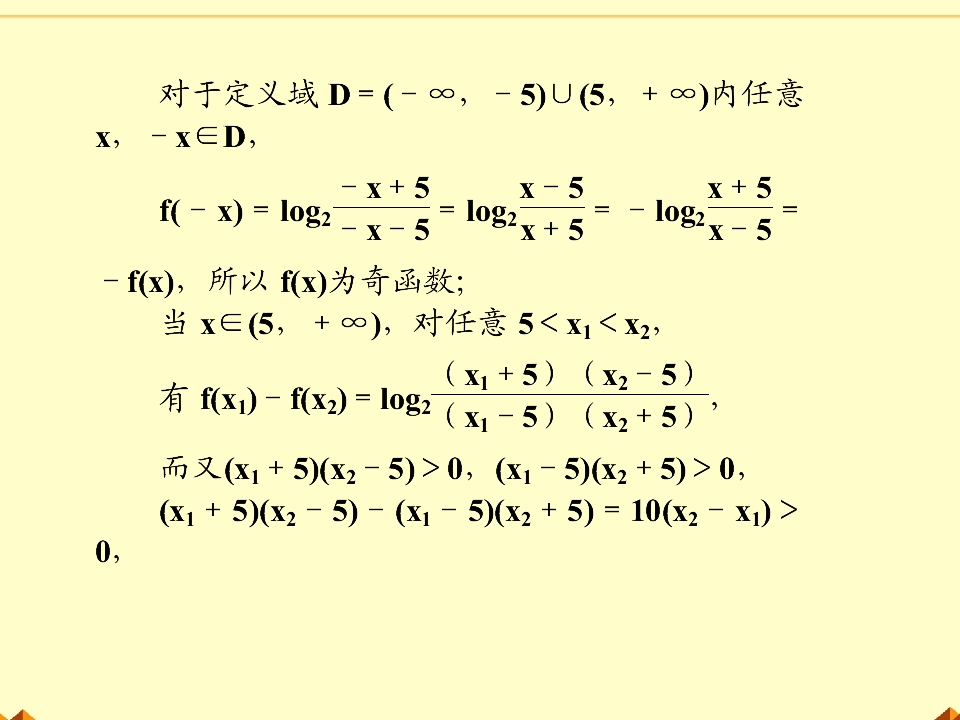 对于定义域 D＝(－∞，－5)∪(5，＋∞)内任意
x，－x∈D，
f(－x)＝log₂\frac{－x＋5}{－x－5}＝log₂\frac{x－5}{x＋5}＝－log₂\frac{x＋5}{x－5}＝
－f(x)，所以 f(x)为奇函数;
当 x∈(5，＋∞)，对任意 5＜x₁＜x₂，
有 f(x₁)－f(x₂)＝log₂\frac{（x₁＋5）（x₂－5）}{（x₁－5）（x₂＋5）}，
而又(x₁＋5)(x₂－5)＞0，(x₁－5)(x₂＋5)＞0，
(x₁＋5)(x₂－5)－(x₁－5)(x₂＋5)＝10(x₂－x₁)＞
0，